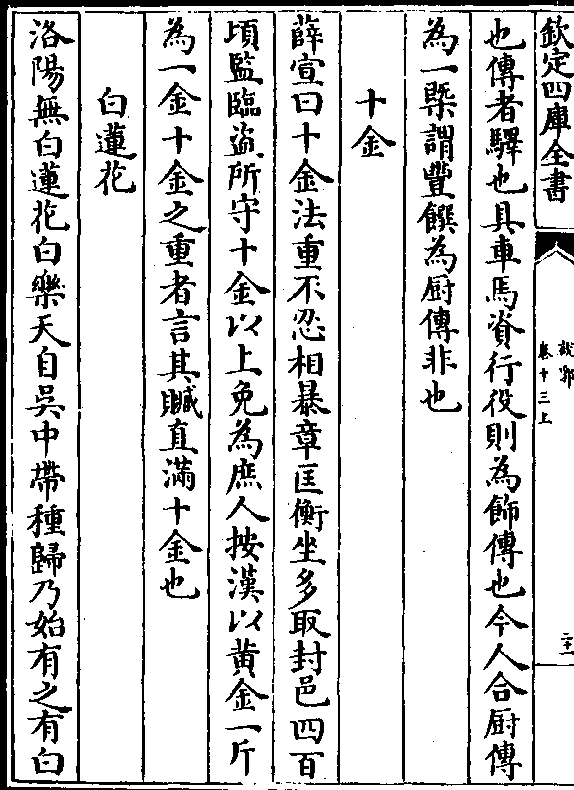 欽定四庫全書
說郛
卷十三上
二十一
也傳者驛也具車馬資行役則為飾傳也今人合厨傳
為一槩謂豐饌為厨傳非也
十金
薛宣曰十金法重不忍相暴章匡衡坐多取封邑四百
頃監臨盜所守十金以上免為庶人按漢以黃金一斤
為一金十金之重者言其贓直滿十金也
白蓮花
洛陽無白蓮花白樂天自吳中帶種歸乃始有之有白